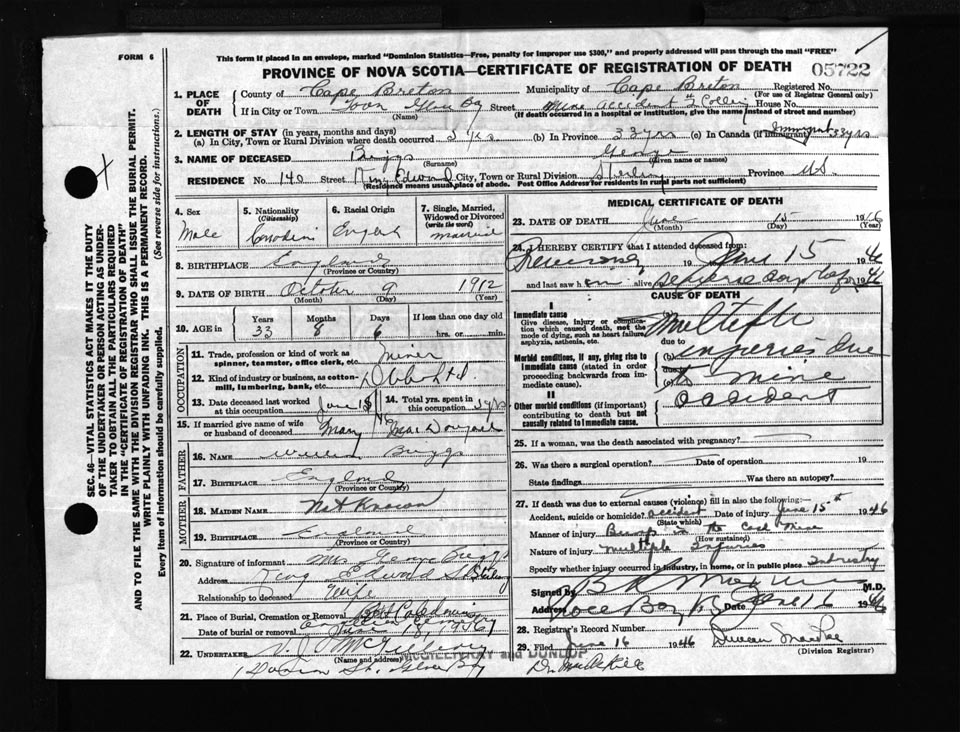 FORM 6
This form if placed in an envelope, marked "Dominion Statistics—Free, penalty for improper use $300," and properly addressed will pass through the mail "FREE"
PROVINCE OF NOVA SCOTIA—CERTIFICATE OF REGISTRATION OF DEATH
05722
SEC. 46—VITAL STATISTICS ACT MAKES IT THE DUTY
OF THE UNDERTAKER OR PERSON ACTING AS UNDER-
TAKER TO OBTAIN ALL THE PARTICULARS REQUIRED
IN THE "CERTIFICATE OF REGISTRATION OF DEATH"
AND TO FILE THE SAME WITH THE DIVISION REGISTRAR WHO SHALL ISSUE THE BURIAL PERMIT.
WRITE PLAINLY WITH UNFADING INK. THIS IS A PERMANENT RECORD.
Every item of Information should be carefully supplied. (See reverse side for instructions.)
1. PLACE OF DEATH
County of Cape Breton Municipality of Cape Breton Registered No.
(For use of Registrar General only)
If in City or Town Town Glace Bay Street Mine accident House No.
(Name) (If death occurred in a hospital or institution, give the name instead of street and number)
2. LENGTH OF STAY (in years, months and days)
(a) In City, Town or Rural Division where death occurred 3 yrs (b) In Province 33 yrs (c) In Canada (if immigrant) Immigrant 33 yrs
3. NAME OF DECEASED Briggs George
(Surname) (Given name or names)
RESIDENCE No. 140 Street King Edward City, Town or Rural Division Sterling Province NS
(Residence means usual place of abode. Post Office Address for residents in rural parts not sufficient)
4. Sex
Male
5. Nationality
(Citizenship)
Canadian
6. Racial Origin
English
7. Single, Married,
Widowed or Divorced
(write the word)
married
8. BIRTHPLACE England
(Province or Country)
9. DATE OF BIRTH October 9 1912
(Month) (Day) (Year)
10. AGE in
Years Months Days If less than one day old
33 8 6 hrs. or min.
OCCUPATION
11. Trade, profession or kind of work as
spinner, teamster, office clerk, etc. miner
12. Kind of industry or business, as cotton-
mill, lumbering, bank, etc.
13. Date deceased last worked
at this occupation June 15
14. Total yrs. spent in
this occupation yrs
15. If married give name of wife
or husband of deceased Mary MacDougall
FATHER
16. NAME William Briggs
17. BIRTHPLACE England
(Province or Country)
MOTHER
18. MAIDEN NAME Not Known
19. BIRTHPLACE England
(Province or Country)
20. Signature of informant Mrs George Briggs
Address King Edward St Sterling
Relationship to deceased Wife
21. Place of Burial, Cremation or Removal
Date of burial or removal June 18, 1946
22. UNDERTAKER
(Name and address)
McGILLIVRAY and DUNLOP
MEDICAL CERTIFICATE OF DEATH
23. DATE OF DEATH June 15 1946
(Month) (Day) (Year)
24. I HEREBY CERTIFY that I attended deceased from:
19 June 15 1946
and last saw h im alive 1946
CAUSE OF DEATH
I
Immediate cause
Give disease, injury or complica-
tion which caused death, not the
mode of dying, such as heart failure,
asphyxia, asthenia, etc.
(a) Multiple
due to
Morbid conditions, if any, giving rise to
immediate cause (stated in order
proceeding backwards from im-
mediate cause).
(b) injuries due
due to
(c) to mine
II
Other morbid conditions (if important)
contributing to death but not
causally related to immediate cause.
accident
25. If a woman, was the death associated with pregnancy?
26. Was there a surgical operation? Date of operation 19
State findings
27. If death was due to external causes (violence) fill in also the following:
Accident, suicide or homicide? accident Date of injury June 15th 1946
(State which)
Manner of injury Bump in the Coal Mine
(How sustained)
Nature of injury multiple injuries
Specify whether injury occurred in industry, in home, or in public place Industry
Signed by M.D.
Address Glace Bay Date June 16 1946
28. Registrar's Record Number
29. Filed June 16 1946 Duncan MacRae
(Division Registrar)